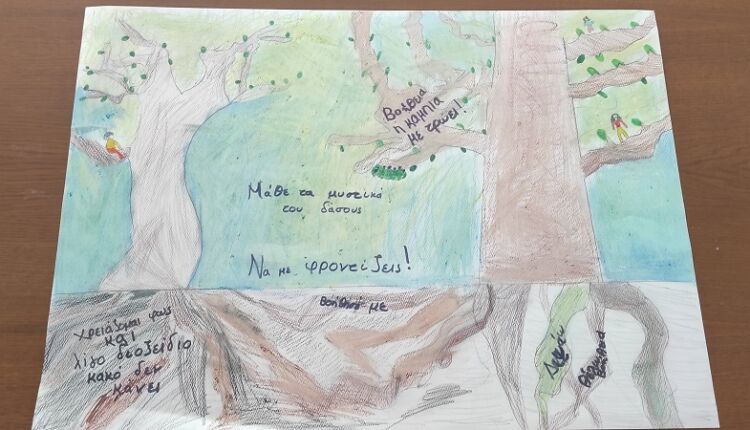 Βοήθεια
η κάμπια
με τρώει!
Μάθε τα μυστικά
του δάσους
Να με φροντίζεις!
βοήθησέ με
Χρειάζομαι φως
και
λίγο διοξείδιο
κακό δεν
κάνει